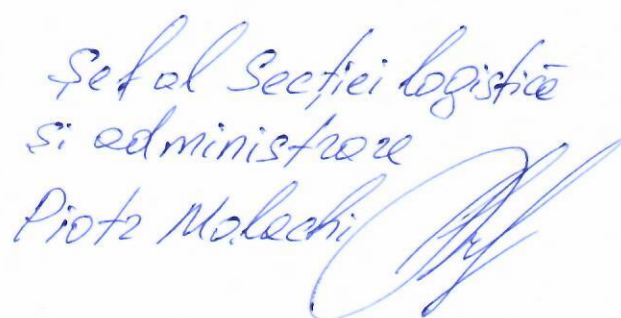 Șef al Secției logistică
și administrare
Piotr Malachi